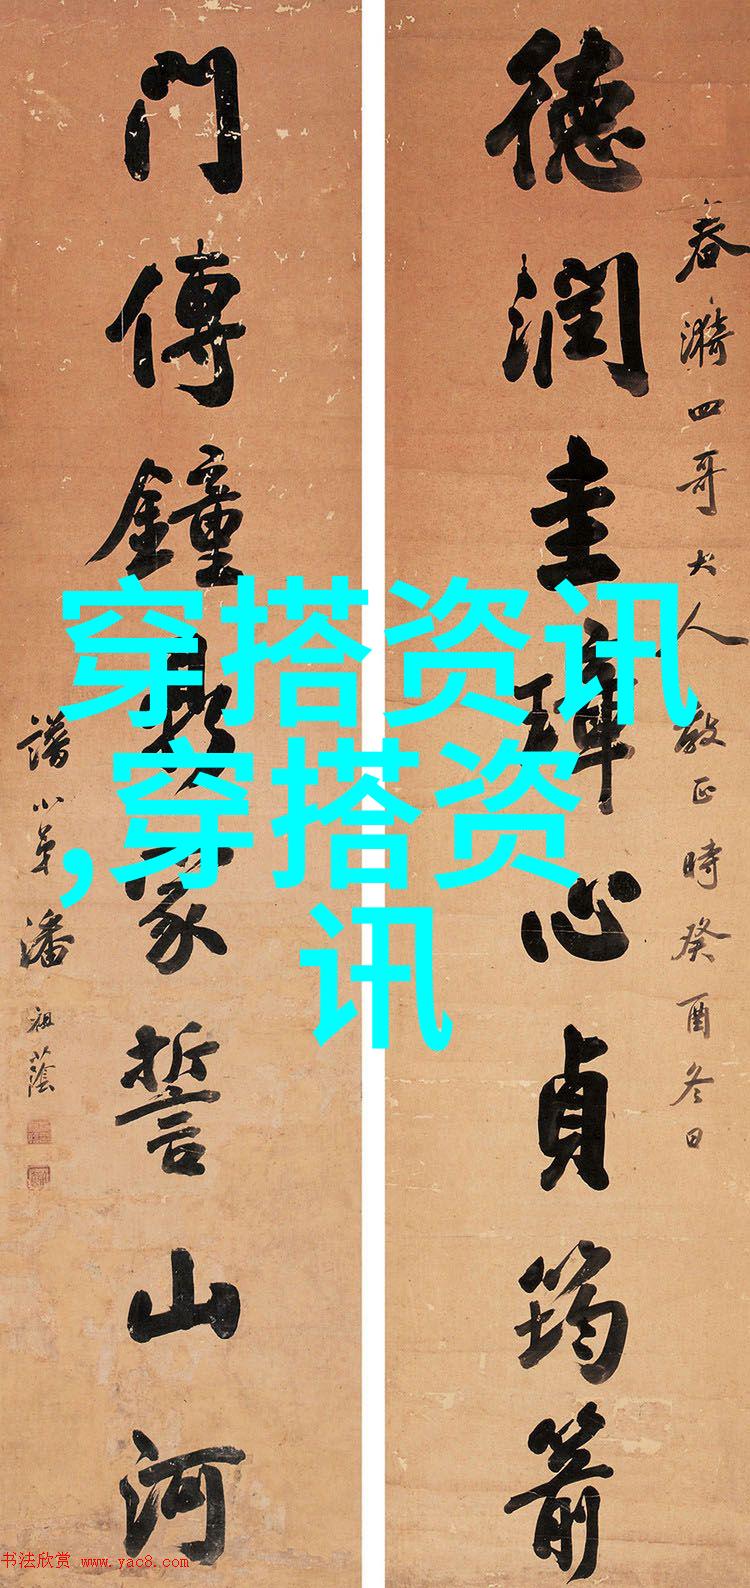 春漪四哥大人教正時癸酉冬日
德潤圭璋心貞筠箭
門傳鐘 家誓山河
譜小弟潘祖蔭
穿搭资讯
,穿搭资
讯
书法欣赏 www.yac8.com